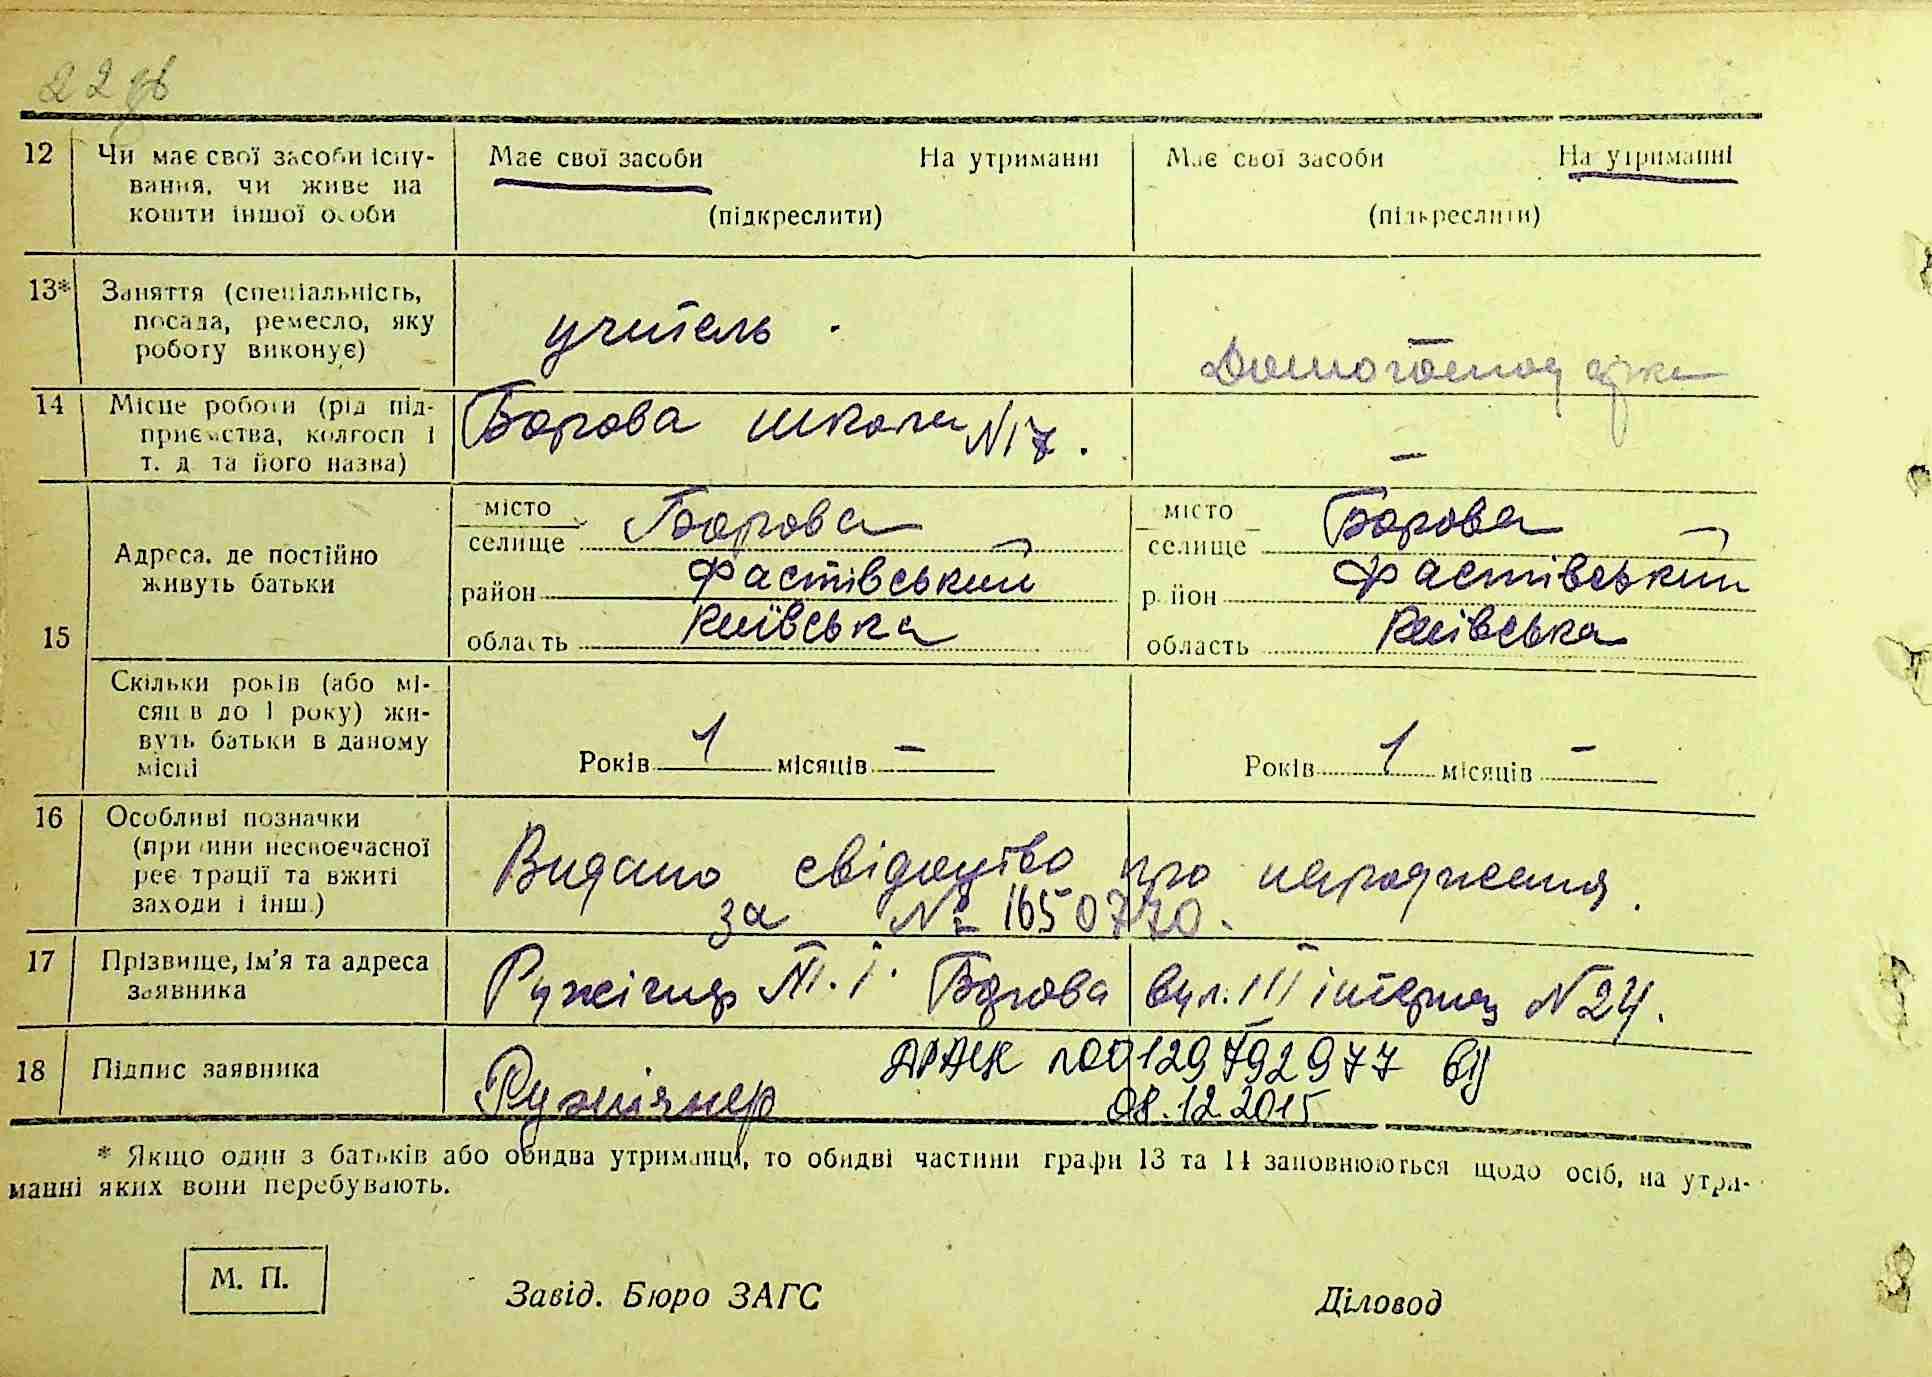 22 зв
12 Чи має свої засоби існу-
вання, чи живе на
кошти іншої особи
Має свої засоби На утриманні
(підкреслити)
Має свої засоби На утриманні
(підкреслити)
13* Заняття (спеціальність,
посада, ремесло, яку
роботу виконує)
учитель.
14 Місце роботи (рід під-
приємства, колгосп і
т. д. та його назва)
Борова школа №17.
—
15 Адреса, де постійно
живуть батьки
місто
селище Борова
район Фастівський
область Київська
місто
селище Борова
район Фастівський
область Київська
Скільки років (або мі-
сяців до 1 року) жи-
вуть батьки в даному
місці
Років 1 місяців —
Років 1 місяців —
16 Особливі позначки
(причини несвоєчасної
реєстрації та вжиті
заходи і інш.)
Видано свідоцтво про народження.
за № 1650770.
17 Прізвище, ім'я та адреса
заявника
Борова вул. III інтернац №24.
18 Підпис заявника
00129792977
08.12.2015
* Якщо один з батьків або обидва утриманці, то обидві частини графи 13 та 14 заповнюються щодо осіб, на утри-
манні яких вони перебувають.
М. П.
Завід. Бюро ЗАГС
Діловод